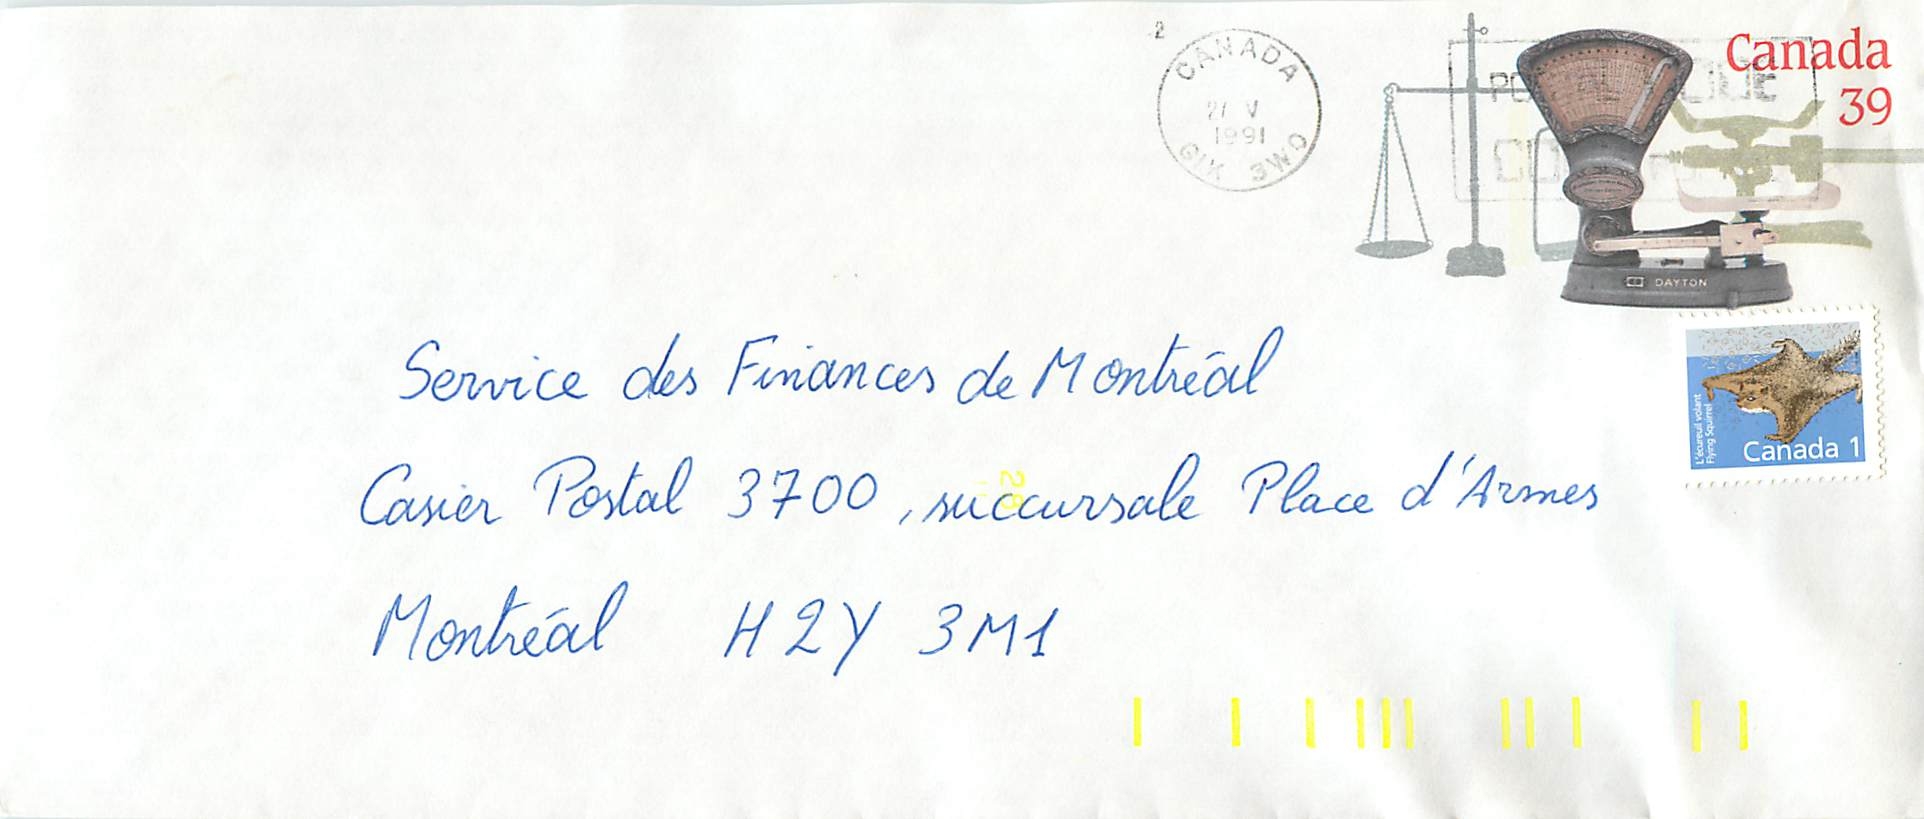 2
CANADA
V
1991
G1K 3W0
Canada
39
DAYTON
L'écureuil volant
Flying Squirrel
Canada 1
Service des Finances de Montréal
Casier Postal 3700, succursale Place d'Armes
28
Montréal H2Y 3M1